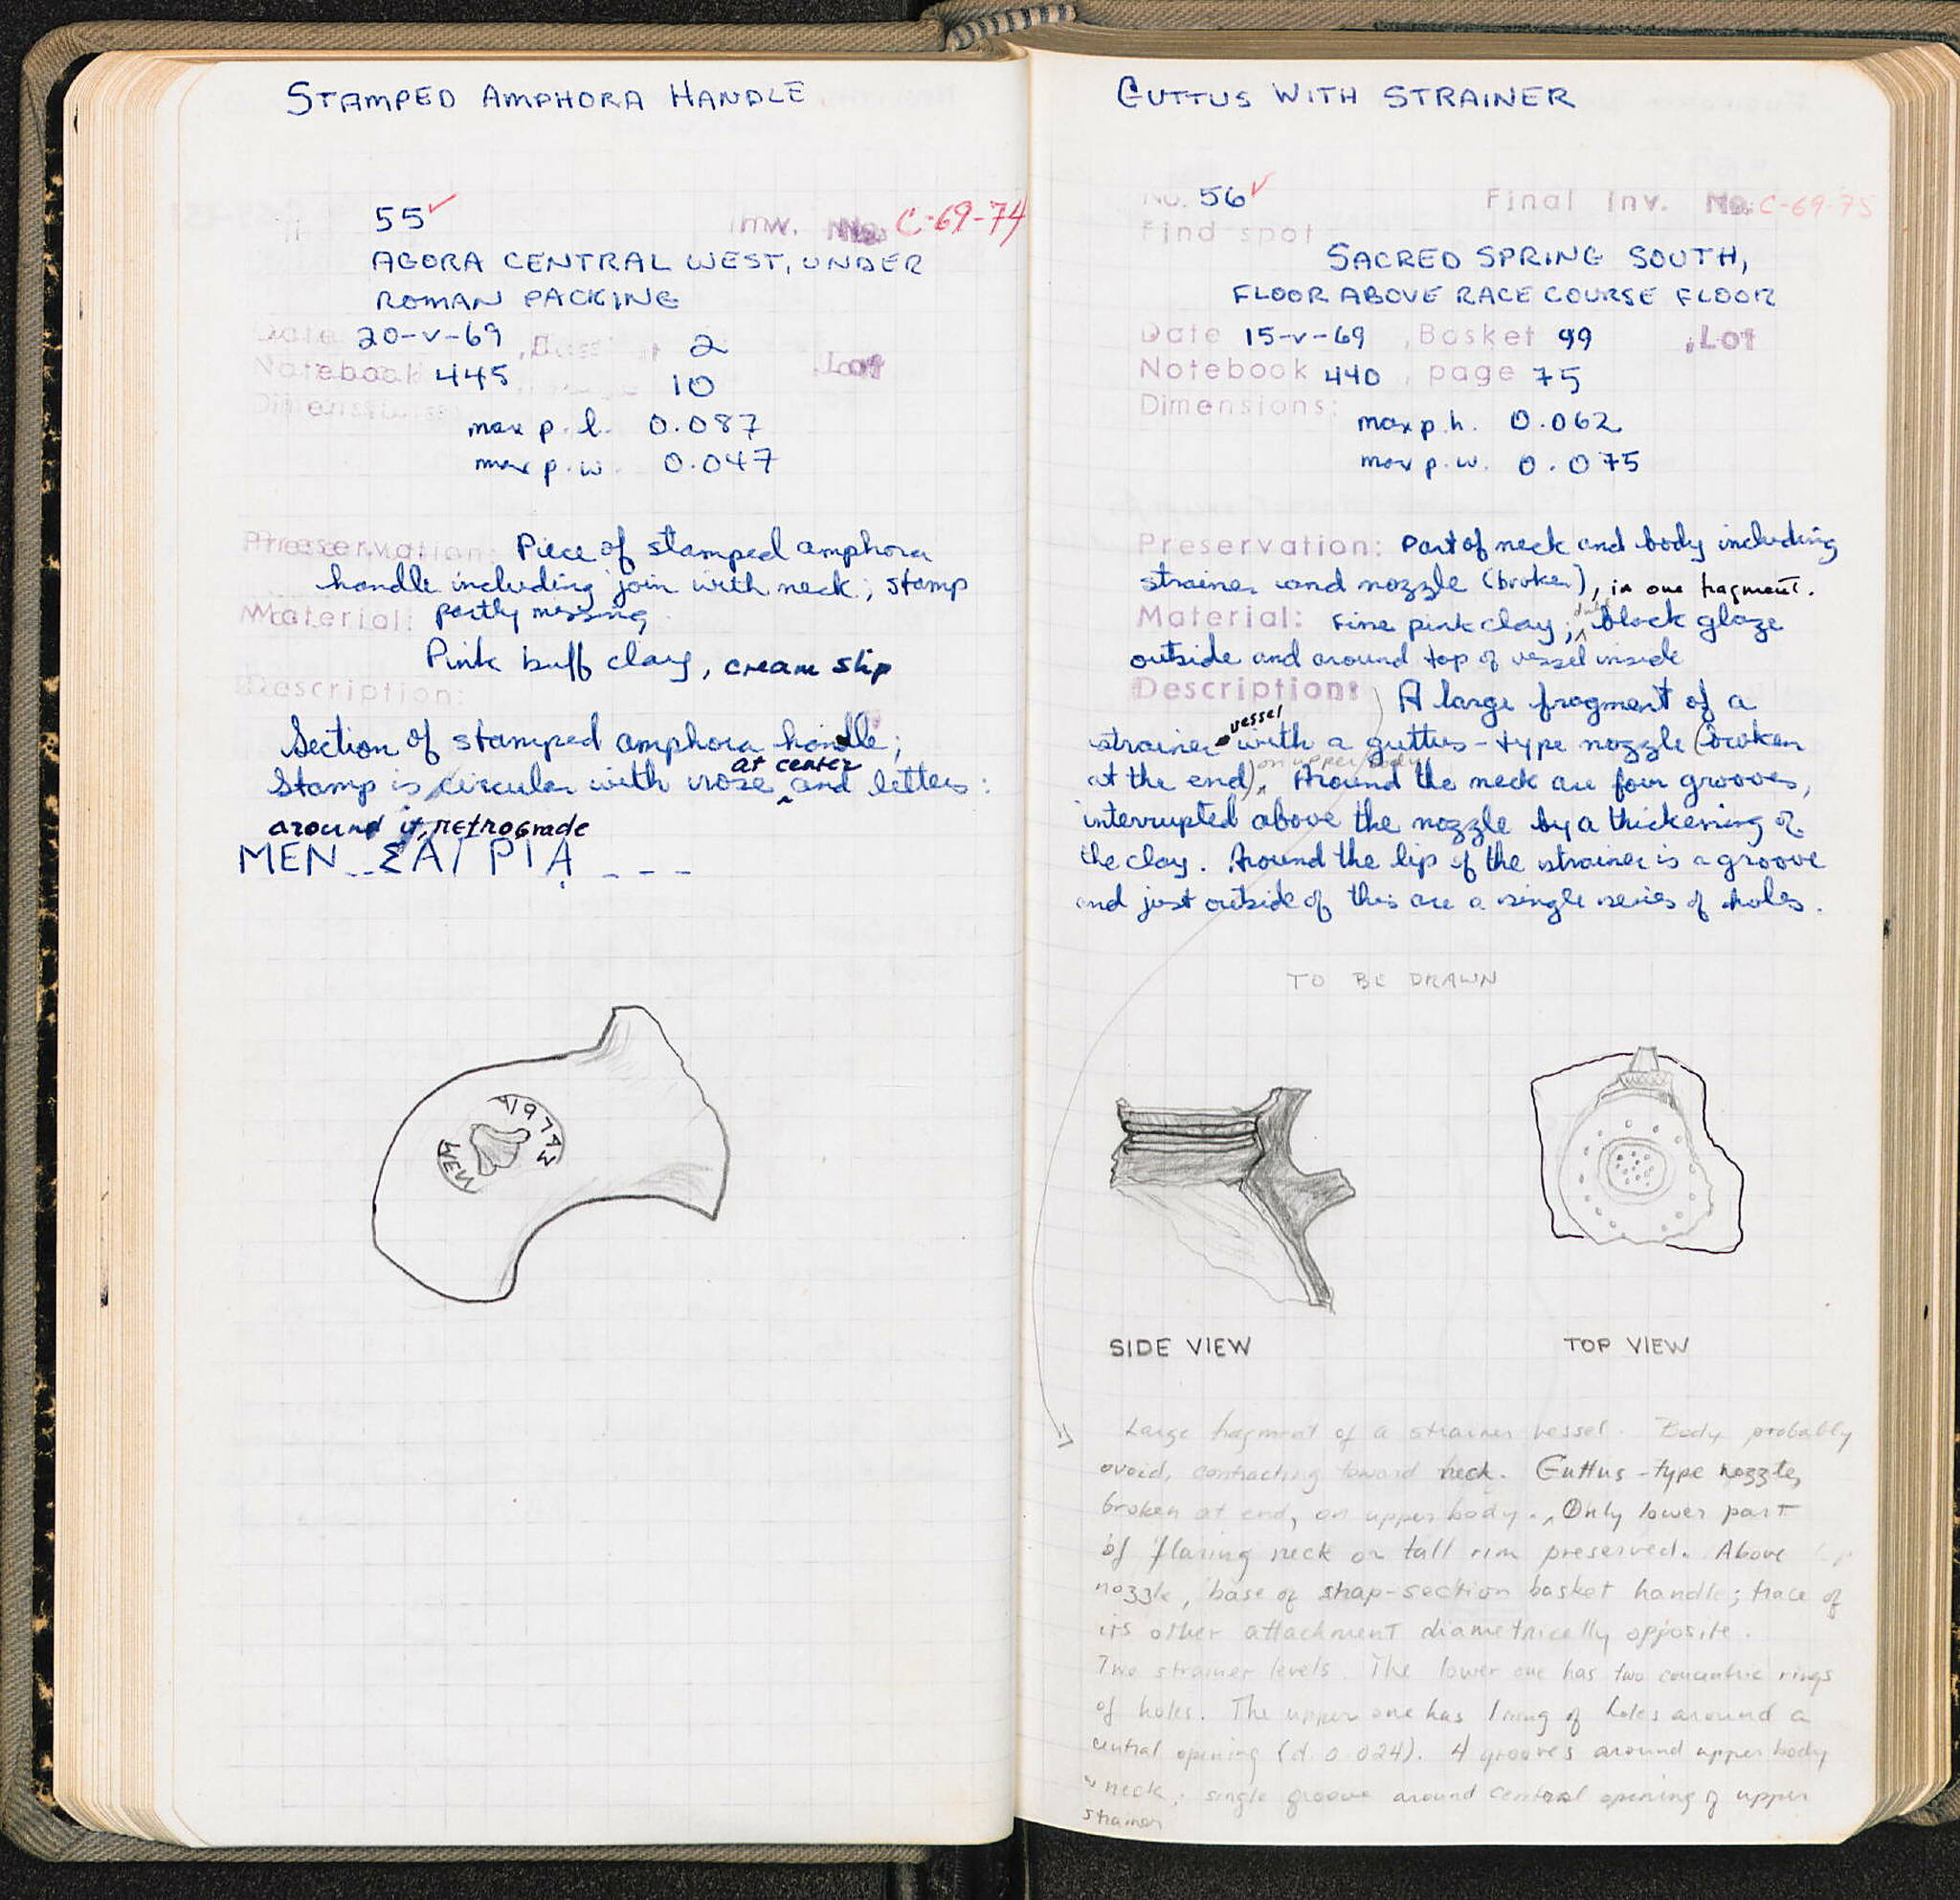 STAMPED AMPHORA HANDLE
55✓ Inv. No. C-69-74
AGORA CENTRAL WEST, UNDER
ROMAN PACKING
Date 20-V-69, Basket 2 Lot
Notebook 445 10
Dimensions
max p. l. 0.087
max p. w. 0.047
Preservation: Piece of stamped amphora
handle including join with neck; stamp
Material: partly missing
Pink buff clay, cream slip
Description:
Section of stamped amphora handle;
at center
Stamp is circular with rose and letters:
around it, retrograde
MEN _ _ ΣΑΓ ΡΙΑ _ _ _
MEN
GUTTUS WITH STRAINER
No. 56✓ Final Inv. No. C-69-75
Find spot
SACRED SPRING SOUTH,
FLOOR ABOVE RACE COURSE FLOOR
Date 15-V-69, Basket 99, Lot
Notebook 440, page 75
Dimensions:
max p. h. 0.062
max p. w. 0.075
Preservation: Part of neck and body including
strainer and nozzle (broken), in one fragment.
Material: Fine pink clay; dull black glaze
outside and around top of vessel inside
Description: A large fragment of a
vessel
strainer with a guttus-type nozzle (broken
on upper body
at the end). Around the neck are four grooves,
interrupted above the nozzle by a thickening of
the clay. Around the lip of the strainer is a groove
and just outside of this are a single series of holes.
TO BE DRAWN
SIDE VIEW TOP VIEW
Large fragment of a strainer vessel. Body probably
ovoid, contracting toward neck. Guttus-type nozzle,
broken at end, on upper body. Only lower part
of flaring neck or tall rim preserved. Above
nozzle, base of strap-section basket handle; trace of
its other attachment diametrically opposite.
Two strainer levels. The lower one has two concentric rings
of holes. The upper one has 1 ring of holes around a
central opening (d. 0.024). 4 grooves around upper body
neck; single groove around central opening of upper
strainer